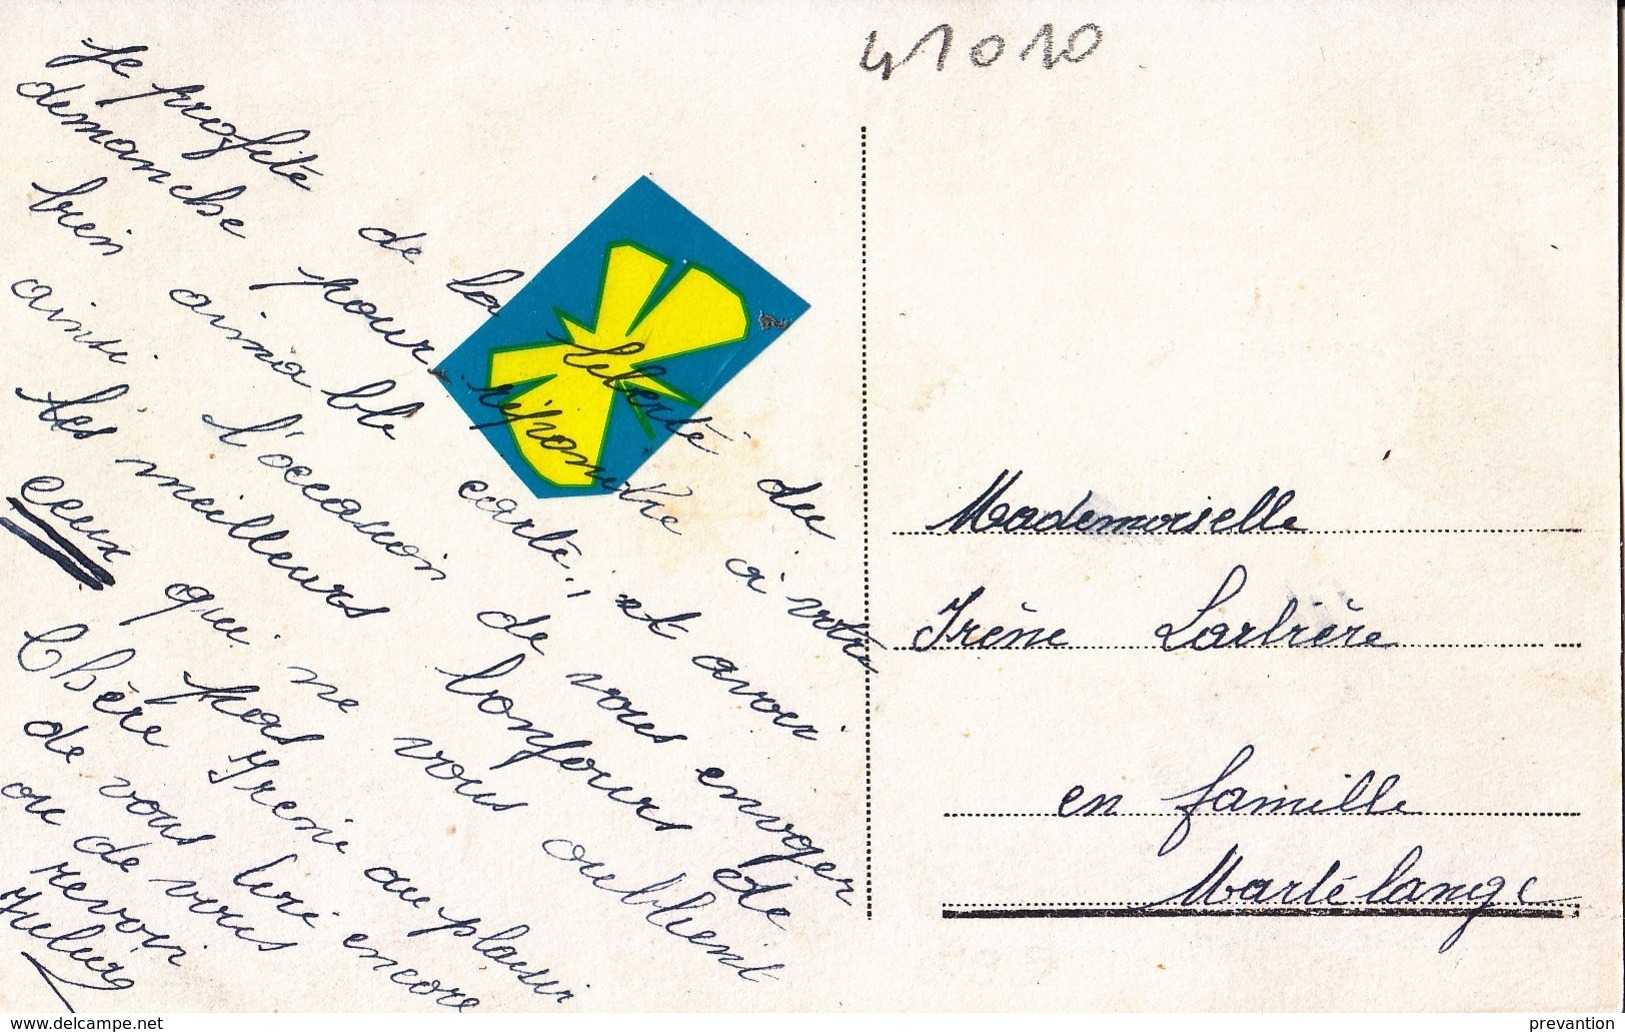 41010
Je profite de la liberté du
demanche pour répondre à votre
bien aimable carte, et avoir
ainsi l'occasion de vous envoyer
les meilleurs bonjours de
ceux qui ne vous oublient
pas
Chère Irène au plaisir
de vous lire encore
ou de vous
revoir
Mademoiselle
Irène Larbière
en famille
Martelange
www.delcampe.net
prevantion